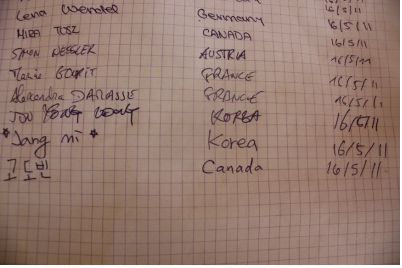 Lena Wendel Germany 16/5/11
MIRA TOSZ CANADA 16/5/11
SIMON AUSTRIA 16/5/11
FRANCE 16/5/11
Alexandra DARASSE FRANCE 16/5/11
JOU KOREA 16/5/11
*Jang mi* Korea 16/5/11
고도빈 Canada 16/5/11